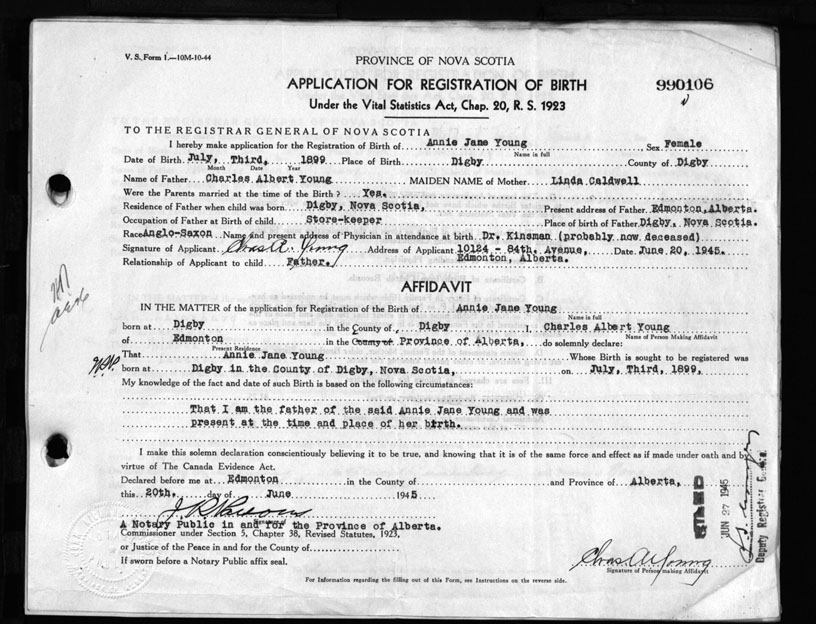 V. S. Form 1.—10M-10-44
PROVINCE OF NOVA SCOTIA
APPLICATION FOR REGISTRATION OF BIRTH
990106
Under the Vital Statistics Act, Chap. 20, R. S. 1923
TO THE REGISTRAR GENERAL OF NOVA SCOTIA
I hereby make application for the Registration of Birth of Annie Jane Young Sex Female
Name in full
Date of Birth July, Third, 1899 Place of Birth Digby County of Digby
Month Date Year
Name of Father Charles Albert Young MAIDEN NAME of Mother Linda Caldwell
Were the Parents married at the time of the Birth? Yes.
Residence of Father when child was born Digby, Nova Scotia, Present address of Father Edmonton, Alberta.
Occupation of Father at Birth of child Store-keeper Place of birth of Father Digby, Nova Scotia.
Race Anglo-Saxon Name and present address of Physician in attendance at birth Dr. Kinsman (probably now deceased)
Signature of Applicant Chas A. Young Address of Applicant 10124 - 84th. Avenue, Date June 20, 1945.
Relationship of Applicant to child Father. Edmonton, Alberta.
AFFIDAVIT
IN THE MATTER of the application for Registration of the Birth of Annie Jane Young
Name in full
born at Digby in the County of Digby I, Charles Albert Young
Name of Person Making Affidavit
of Edmonton in the County of Province of Alberta, do solemnly declare:
Present Residence
That Annie Jane Young Whose Birth is sought to be registered was
born at Digby in the County of Digby, Nova Scotia, on July, Third, 1899,
My knowledge of the fact and date of such Birth is based on the following circumstances:
That I am the father of the said Annie Jane Young and was
present at the time and place of her birth.
I make this solemn declaration conscientiously believing it to be true, and knowing that it is of the same force and effect as if made under oath and by
virtue of The Canada Evidence Act.
Declared before me at Edmonton in the County of and Province of Alberta,
this 20th. day of June 1945
A Notary Public in and for the Province of Alberta.
Commissioner under Section 5, Chapter 38, Revised Statutes, 1923,
or Justice of the Peace in and for the County of
If sworn before a Notary Public affix seal.
Chas A Young
Signature of Person making Affidavit
For Information regarding the filling out of this Form, see Instructions on the reverse side.
FILED
JUN 27 1945
Deputy Registrar General